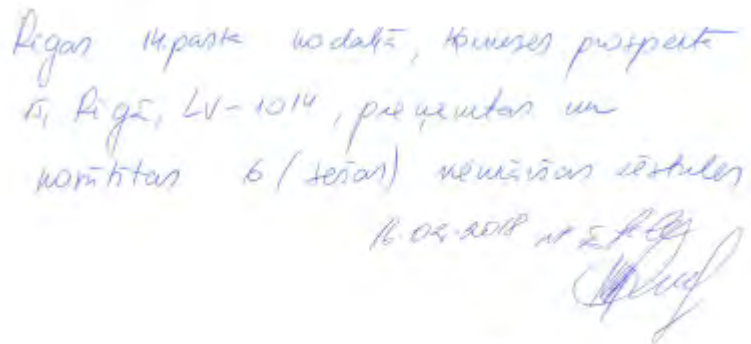 Rīgas 14.pasta nodaļā, Komēses prospektā
15, Rīgā, LV-1014, pieņemtas un
nosūtītas 6 (sešas) vienkāršas vēstules
16.02.2018